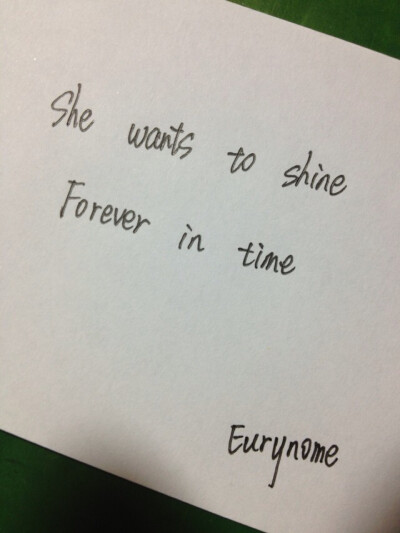 She wants to shine
Forever in time
Eurynome